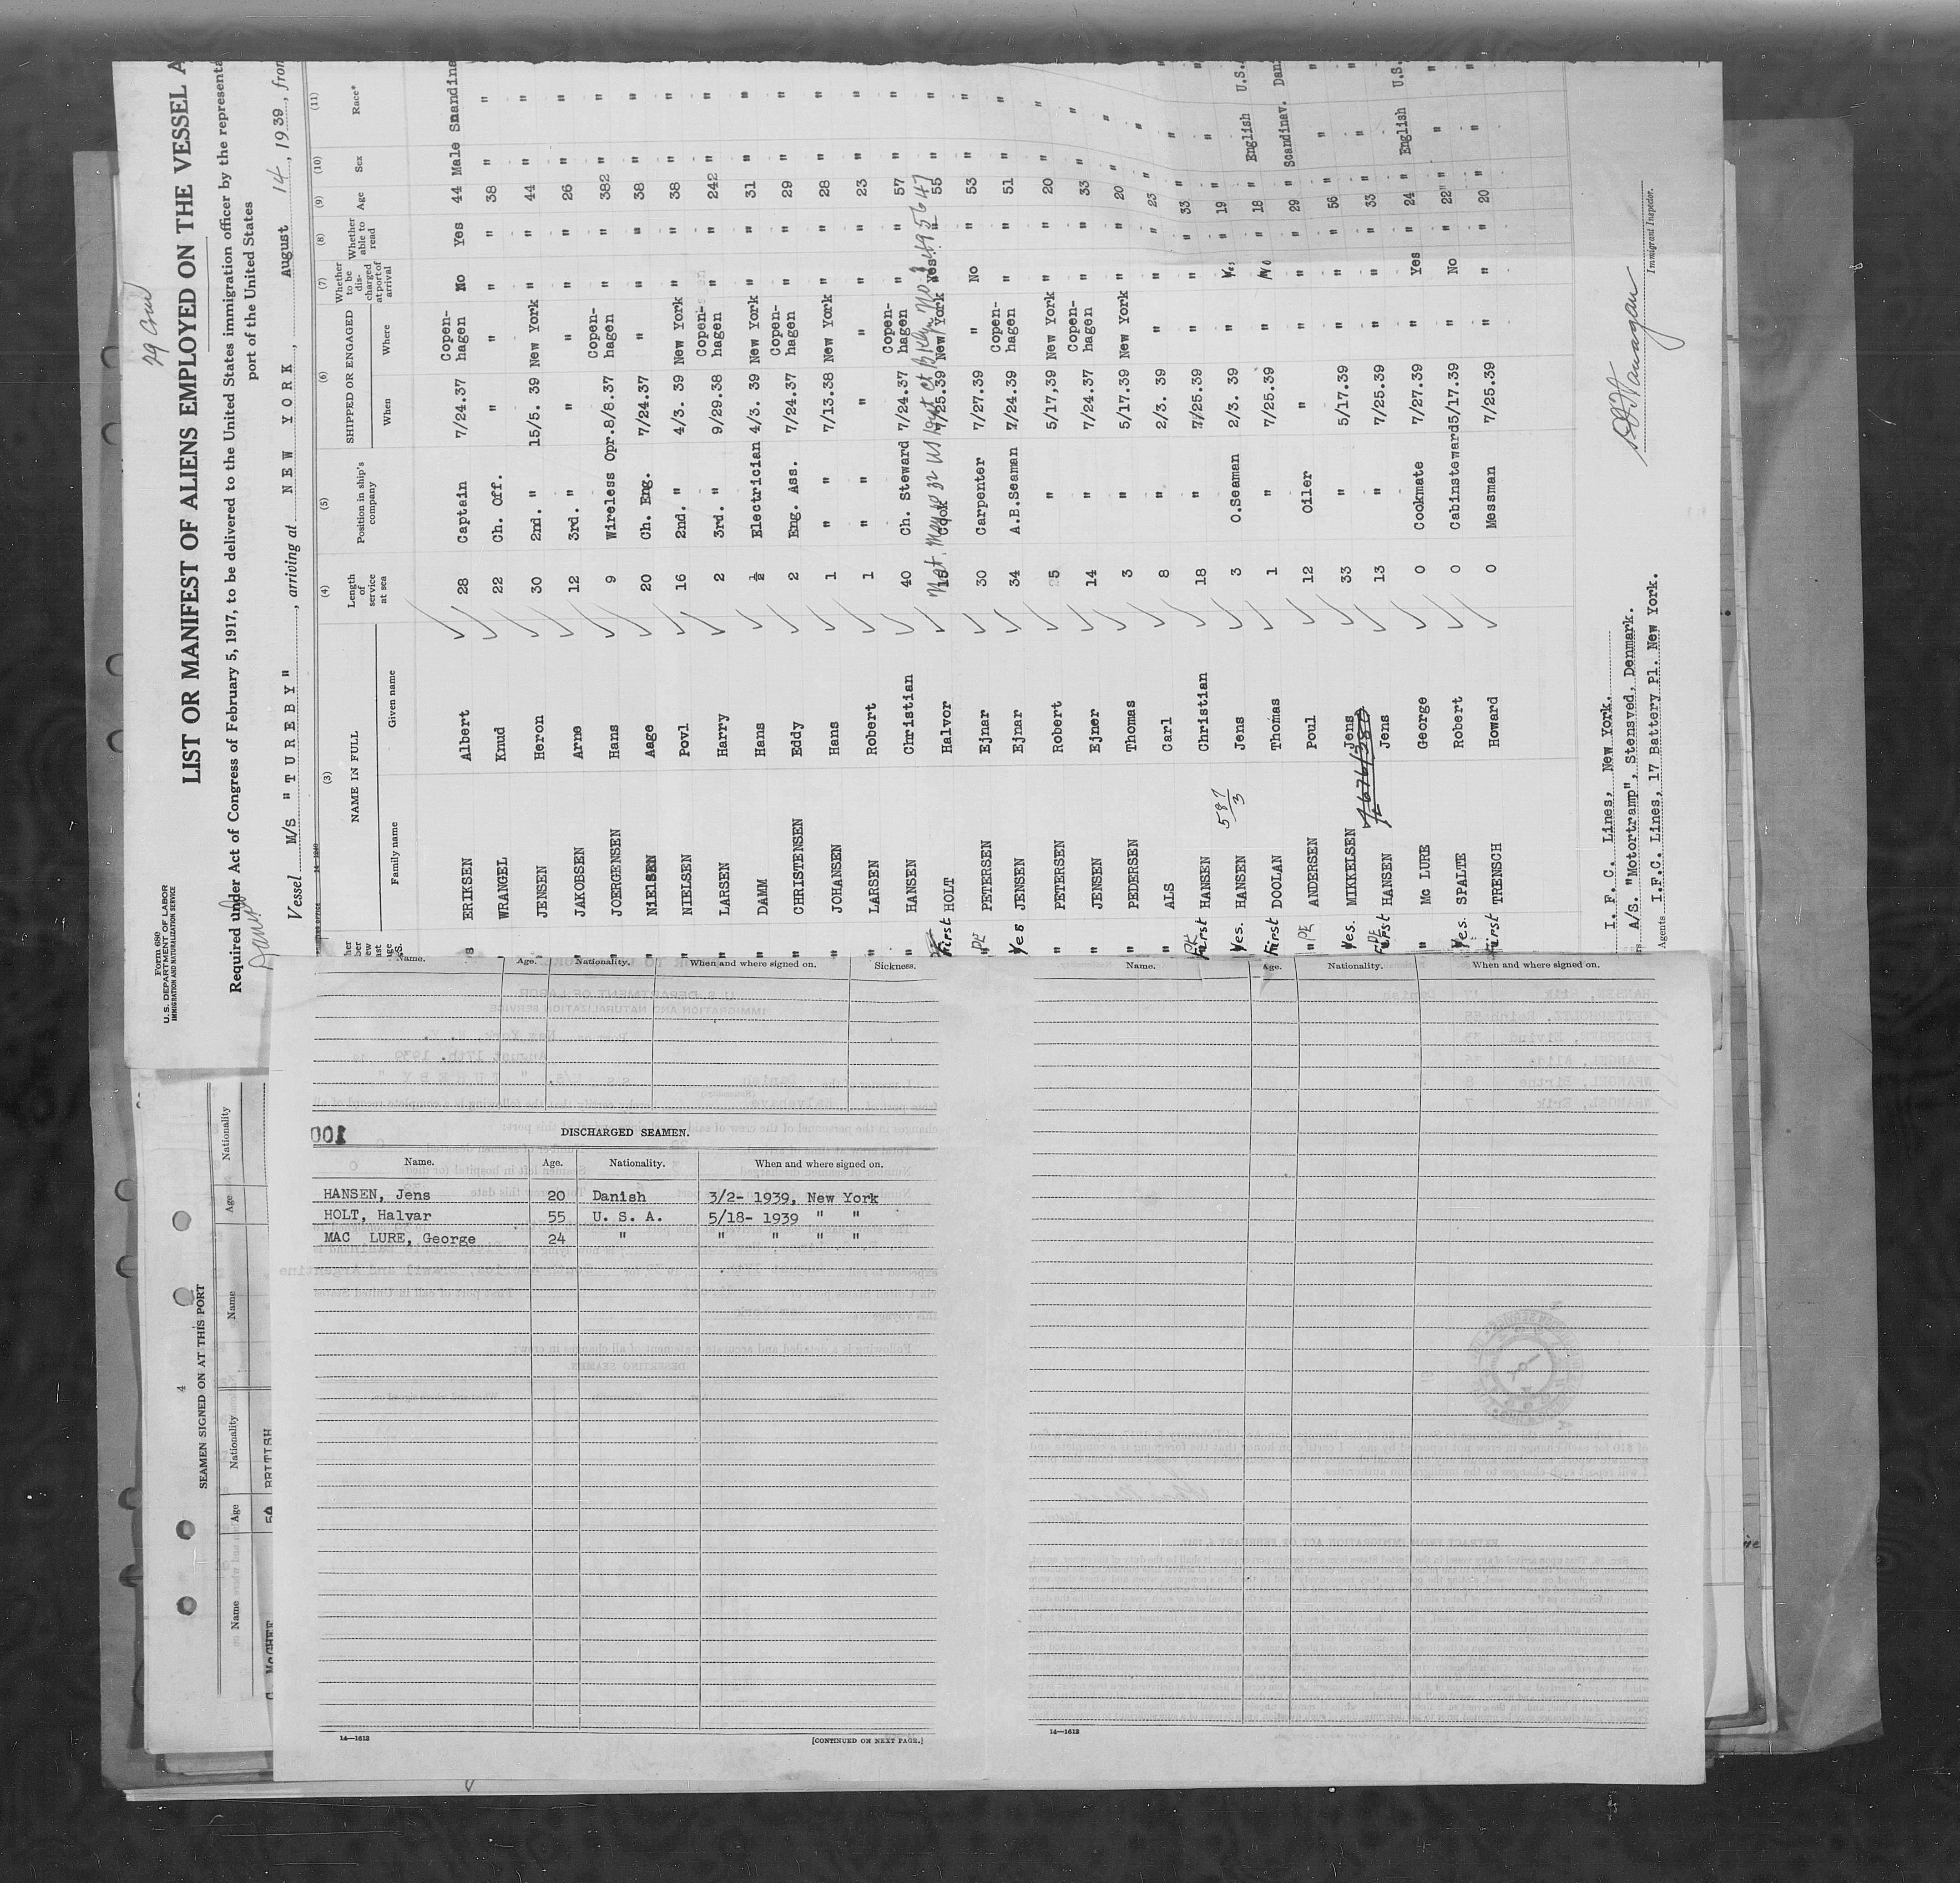 29 Cru
Form 680
U. S. DEPARTMENT OF LABOR
IMMIGRATION AND NATURALIZATION SERVICE
LIST OR MANIFEST OF ALIENS EMPLOYED ON THE VESSEL A
Required under Act of Congress of February 5, 1917, to be delivered to the United States immigration officer by the representa
port of the United States
Danish
Vessel M/S " T U R E B Y " , arriving at N E W Y O R K , August 14 , 1939, from
(3) (4) (5) (6) (7) (8) (9) (10) (11)
NAME IN FULL
Family name Given name
Length of service at sea
Position in ship's company
SHIPPED OR ENGAGED
When Where
Whether to be discharged at port of arrival
Whether able to read
Age Sex Race*
ERIKSEN Albert 28 Captain 7/24.37 Copenhagen No Yes 44 Male Snandina
WRANGEL Knud 22 Ch. Off. " " " " 38 " "
JENSEN Heron 30 2nd. " 15/5. 39 New York " " 44 " "
JAKOBSEN Arne 12 3rd. " " " " " 26 " "
JOERGENSEN Hans 9 Wireless Opr. 8/8.37 Copenhagen " " 382 " "
NIELSEN Aage 20 Ch. Eng. 7/24.37 " " " 38 " "
NIELSEN Povl 16 2nd. " 4/3. 39 New York " " 38 " "
LARSEN Harry 2 3rd. " 9/29.38 Copenhagen " " 242 " "
DAMM Hans ½ Electrician 4/3. 39 New York " " 31 " "
CHRISTENSEN Eddy 2 Eng. Ass. 7/24.37 Copenhagen " " 29 " "
JOHANSEN Hans 1 " " 7/13.38 New York " " 28 " "
LARSEN Robert 1 " " " " " " 23 " "
HANSEN Christian 40 Ch. Steward 7/24.37 Copenhagen " " 57 " "
First HOLT Halvor 15 Cook 7/25.39 New York Yes " 55 " "
" PETERSEN Ejnar 30 Carpenter 7/27.39 " No " 53 " "
Yes JENSEN Ejnar 34 A.B.Seaman 7/24.39 Copenhagen " " 51 " "
" PETERSEN Robert 25 " 5/17,39 New York " " 20 " "
" JENSEN Ejner 14 " 7/24.37 Copenhagen " " 33 " "
" PEDERSEN Thomas 3 " 5/17.39 New York " " 20 " "
" ALS Carl 8 " 2/3. 39 " " " 23 " "
First HANSEN Christian 18 " 7/25.39 " " " 33 " "
587/3
Yes. HANSEN Jens 3 O.Seaman 2/3. 39 " Yes " 19 " "
First DOOLAN Thomas 1 " 7/25.39 " No " 18 " English U.S.
" ANDERSEN Poul 12 Oiler " " " " 29 " Scandinav. Dan
Yes. MIKKELSEN Jens 33 " 5/17.39 " " " 56 " "
First HANSEN Jens 13 " 7/25.39 " " " 33 " "
" Mc LURE George 0 Cookmate 7/27.39 " Yes " 24 " English U.S.
Yes. SPALTE Robert 0 Cabinsteward 5/17.39 " No " 22 " "
First TRENSCH Howard 0 Messman 7/25.39 " " " 20 " "
I. F. C. Lines, New York.
A/S. "Motortramp", Stensved, Denmark.
Agents I.F.C. Lines, 17 Battery Pl. New York.
Immigrant Inspector.
Name. Age. Nationality. When and where signed on. Sickness.
Name. Age. Nationality. When and where signed on.
001
DISCHARGED SEAMEN.
Name. Age. Nationality. When and where signed on.
HANSEN, Jens 20 Danish 3/2- 1939, New York
HOLT, Halvar 55 U. S. A. 5/18- 1939 " "
MAC LURE, George 24 " " " " "
14—1612
[CONTINUED ON NEXT PAGE.]
14—1612
SEAMEN SIGNED ON AT THIS PORT
4
Name Age Nationality Name Age Nationality
BRITISH